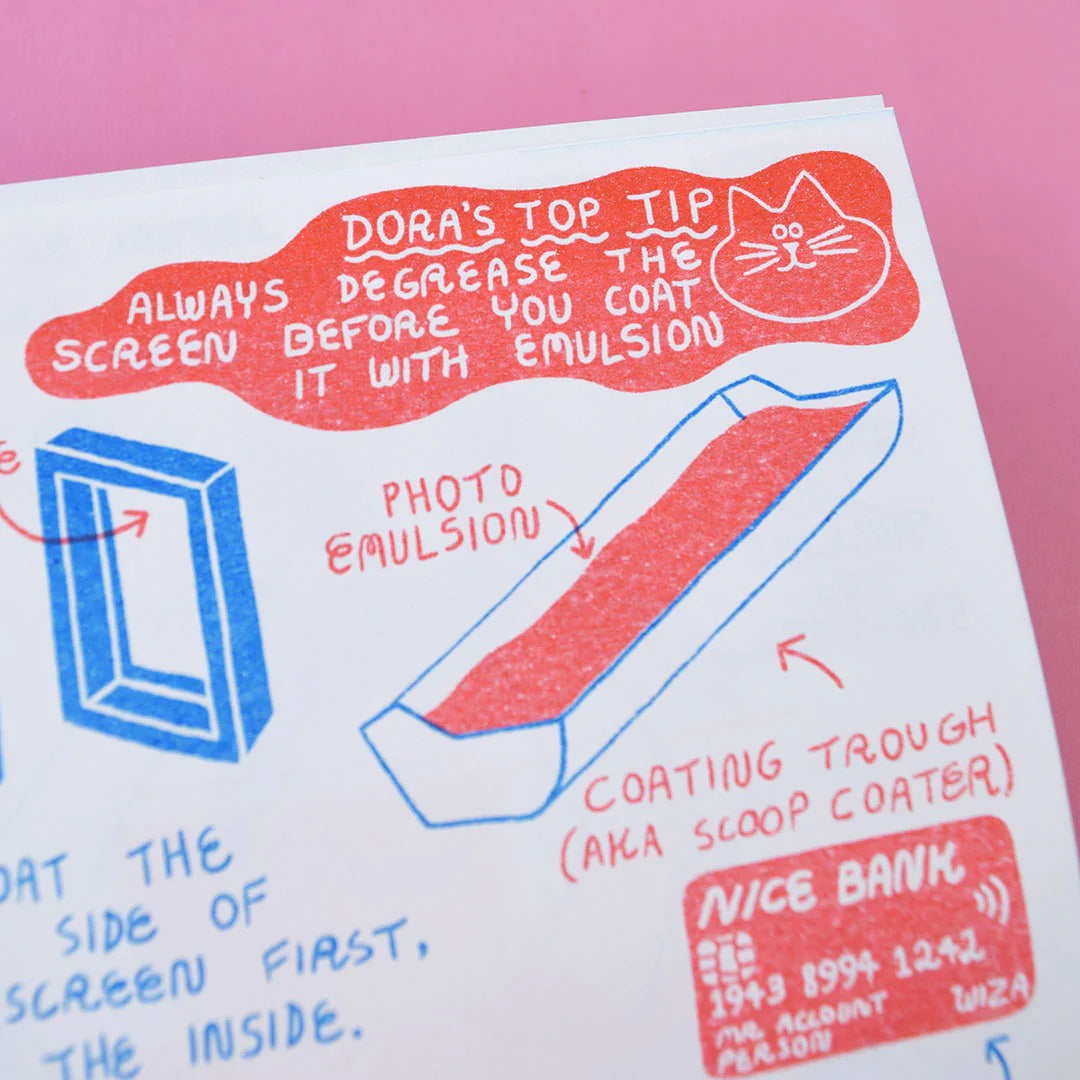 DORA'S TOP TIP
ALWAYS DEGREASE THE
SCREEN BEFORE YOU COAT
IT WITH EMULSION
PHOTO
EMULSION
COATING TROUGH
(AKA SCOOP COATER)
THE
SIDE OF
SCREEN FIRST,
THE INSIDE.
NICE BANK
1943 8994 1242
MR ACCOUNT
PERSON
WIZA